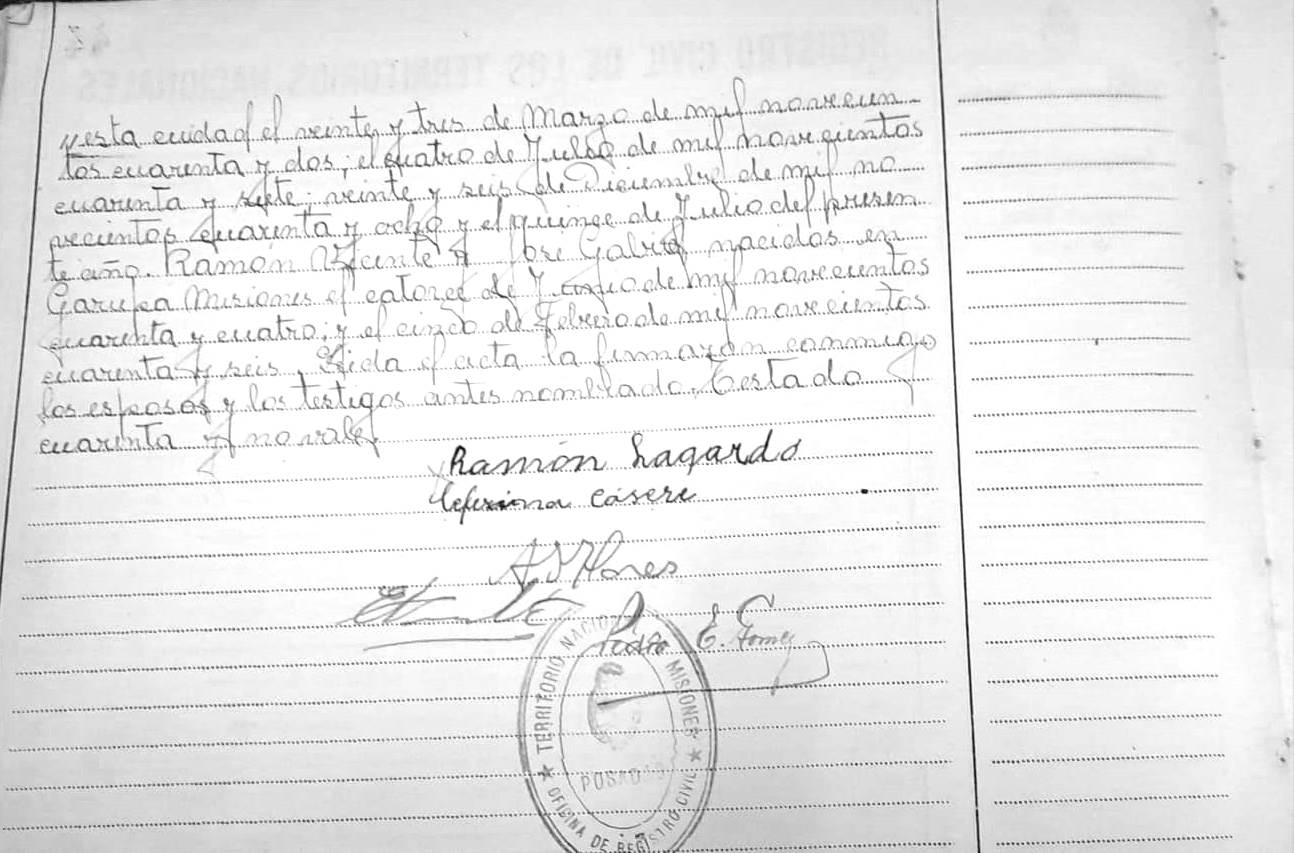 REGISTRO CIVIL DE LOS TERRITORIOS NACIONALES
y esta cuidad el veinte y tres de Marzo de mil novecien-
tos cuarenta y dos; el cuatro de Julio de mil novecientos
cuarenta y siete; veinte y seis de Diciembre de mil no
vecientos cuarenta y ocho y el quince de Julio del presen
te año. Ramón Vicente y José Gabriel nacidos en
Garupa Misiones el catorce de de mil novecientos
cuarenta y cuatro; y el cinco de Febrero de mil novecientos
cuarenta y seis. Leida el acta la firmaron conmigo
los esposos y los testigos antes nombrado. Testado
cuarenta y no vale
Ramón Lagardo
Ceferina Cásere
A Flores
Pedro E. Gomez
TERRITORIO NACIONAL MISIONES
POSADAS
OFICINA DE REGISTRO CIVIL